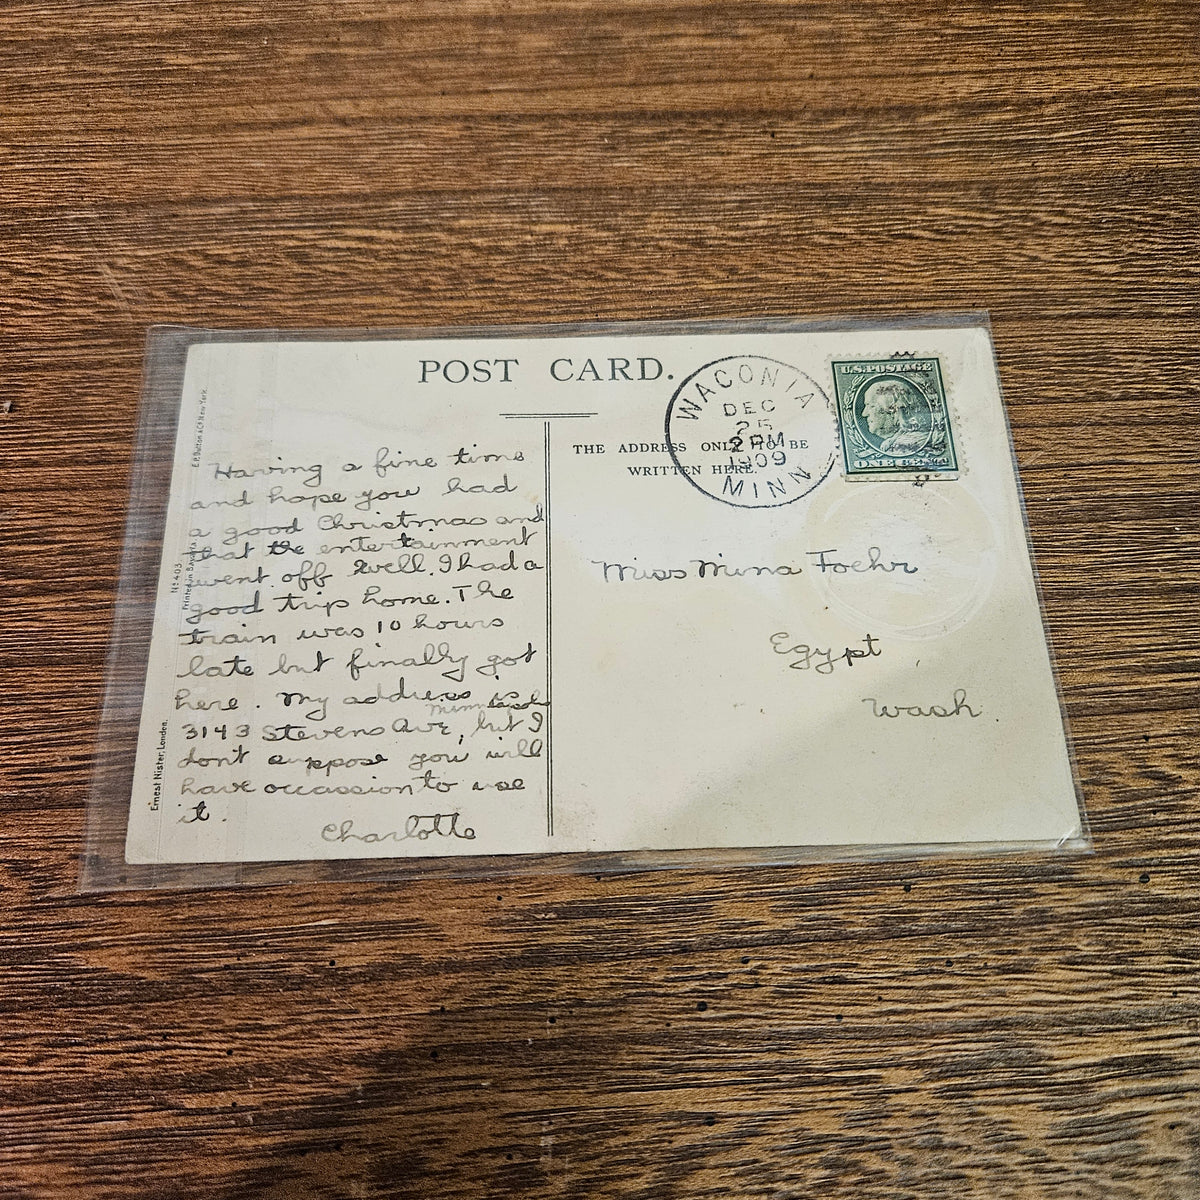 POST CARD.
WACONIA
DEC
25
2 PM
1909
MINN
U.S. POSTAGE
ONE CENT
THE ADDRESS ONLY TO BE
WRITTEN HERE.
E.P. Dutton & Co. New York.
No 403.
Printed in Bavaria
Ernest Nister, London.
Having a fine time
and hope you had
a good Christmas and
that the entertainment
went off well. I had a
good trip home. The
train was 10 hours
late but finally got
here. My address is
Minneapolis
3143 Stevens Ave, but I
dont suppose you will
have occassion to use
it.
Charlotte
Miss Mina Foehr
Egypt
Wash.